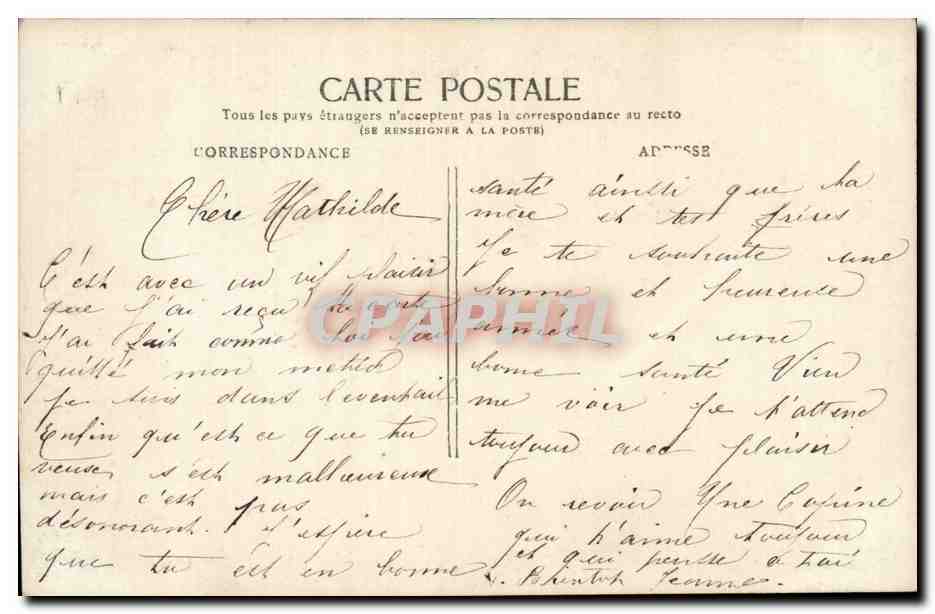 CARTE POSTALE
Tous les pays étrangers n'acceptent pas la correspondance au recto
(SE RENSEIGNER A LA POSTE)
CORRESPONDANCE
Chére Mathilde
C'est avec un vif plaisir
que j'ai reçu ta carte
j'ai fait comme toi j'ai
quitté mon metié
je suis dans l'eventail
Enfin qu'est ce que tu
veuse s'est malheureuse
mais c'est pas
désonorant. J'espère
que tu est en bonne
ADRESSE
santé ainsti que ta
mère et tes frères
Je te souhaite une
bonne et heureuse
année et une
bonne santé Vien
me voir Je t'attend
toujour avec plaisir
Ou revoir Une Copine
qui t'aime toujour
et qui pensse a toi
Bientot Jeanne.
CPAPHIL